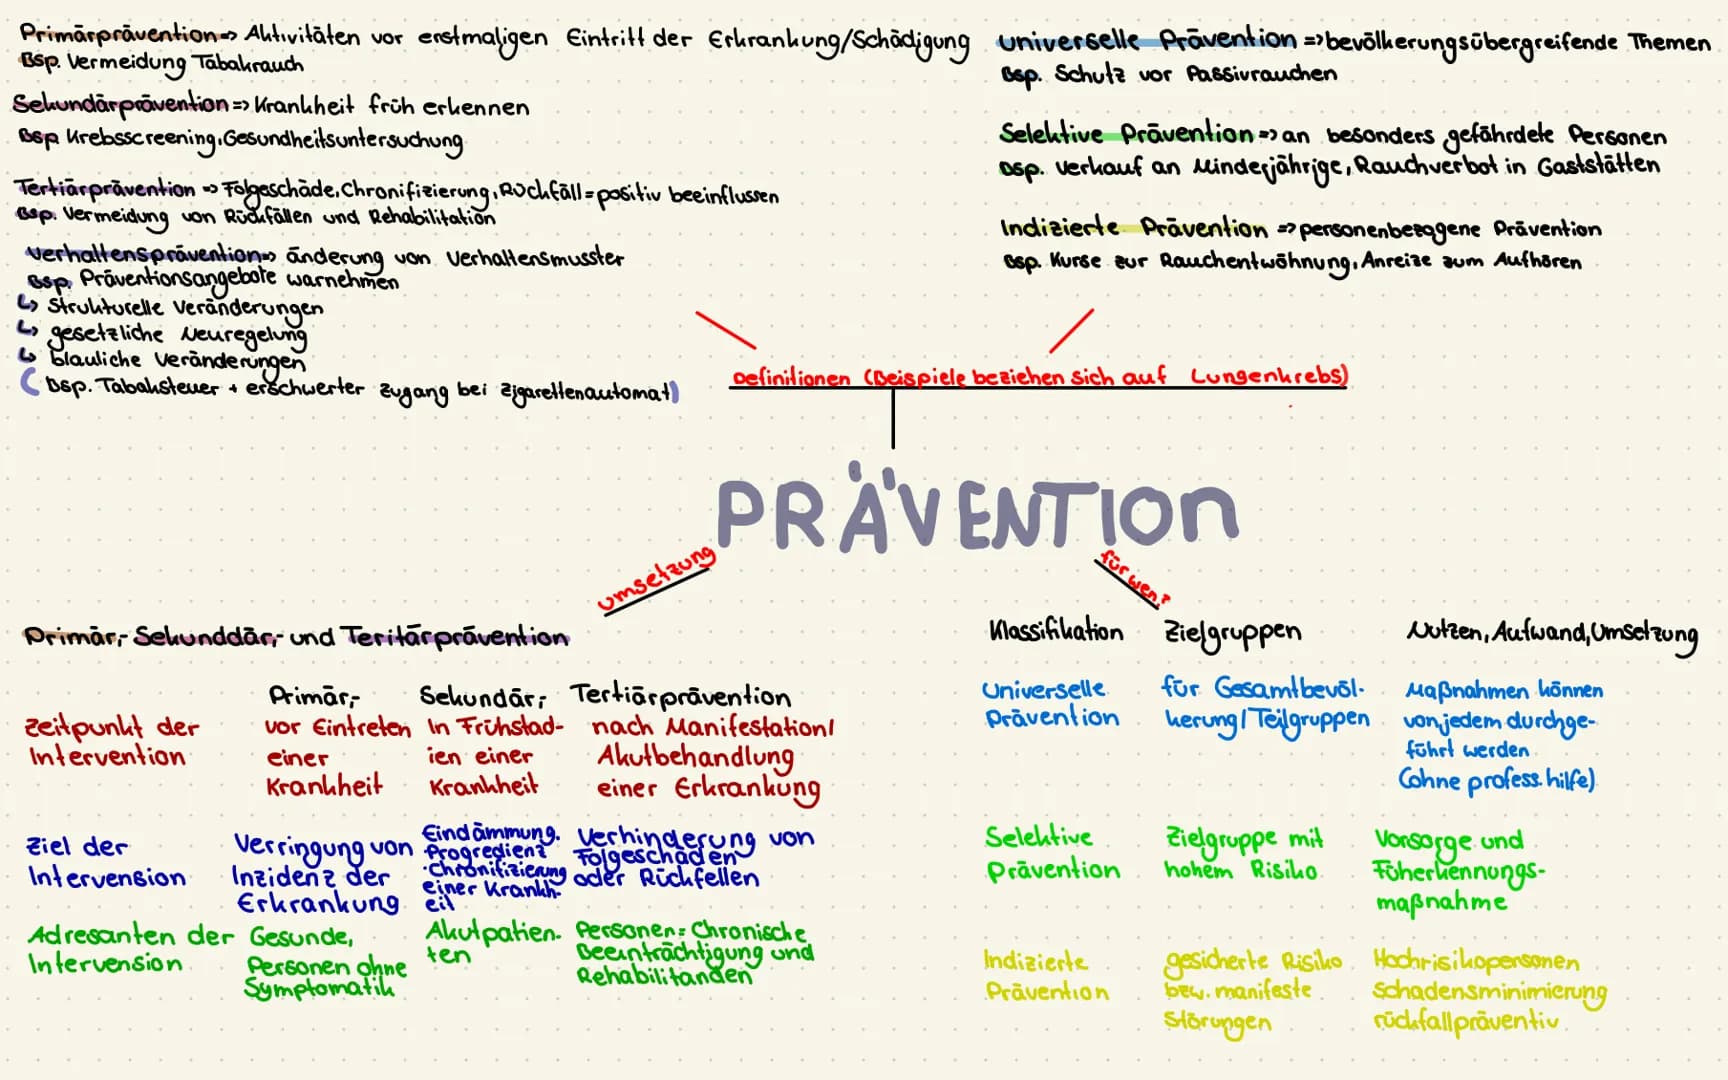 Primärprävention=> Aktivitäten vor erstmaligen Eintritt der Erkrankung/Schädigung
Bsp. Vermeidung Tabakrauch
Sekundärprävention=> Krankheit früh erkennen
Bsp Krebsscreening, Gesundheitsuntersuchung
Tertiärprävention => Folgeschäde, Chronifizierung, Rückfäll=positiv beeinflussen
Bsp. Vermeidung von Rückfällen und Rehabilitation
Verhaltensprävention=> änderung von Verhaltensmusster
Bsp. Präventionsangebote warnehmen
↳ Strukturelle Veränderungen
↳ gesetzliche Neuregelung
↳ blauliche Veränderungen
(Bsp. Tabaksteuer + erschwerter Zugang bei Zigarettenautomat)
Universelle Prävention =>bevölkerungsübergreifende Themen
Bsp. Schutz vor Passivrauchen
Selektive Prävention => an besonders gefährdete Personen
Bsp. Verkauf an Minderjährige, Rauchverbot in Gaststätten
Indizierte Prävention =>personenbezogene Prävention
Bsp. Kurse zur Rauchentwöhnung, Anreize zum Aufhören
Definitionen (Beispiele beziehen sich auf Lungenkrebs)
PRÄVENTION
Umsetzung
für wen?
Primär,- Sekunddär,- und Teritärprävention
Primär,- Sekundär,- Tertiärprävention
Zeitpunkt der vor Eintreten In Frühstad- nach Manifestation/
Intervention einer ien einer Akutbehandlung
Krankheit Krankheit einer Erkrankung
Ziel der Verringung von Eindämmung. Verhinderung von
Intervension Inzidenz der Progredienz Folgeschäden
Erkrankung ·Chronifizierung oder Rückfellen
einer Krankh-
eit
Adresanten der Gesunde, Akutpatien- Personen= Chronische
Intervension Personen ohne ten Beeinträchtigung und
Symptomatik Rehabilitanden
Klassifikation Zielgruppen Nutzen, Aufwand, Umsetzung
Universelle für Gesamtbevöl- Maßnahmen können
Prävention kerung/Teilgruppen von jedem durchge-
führt werden
(ohne profess. hilfe)
Selektive Zielgruppe mit Vorsorge und
Prävention hohem Risiko Füherkennungs-
maßnahme
Indizierte gesicherte Risiko Hochrisikopersonen
Prävention bzw. manifeste Schadensminimierung
Störungen rückfallpräventiv